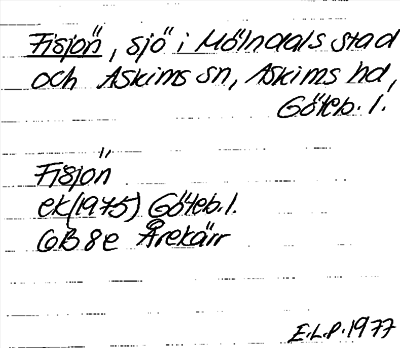 Fisjön, sjö i Mölndals stad
och Askims sn, Askims hd,
Göteb. l.
Fisjön
ek(1975) Göteb. l.
6B 8e Årekärr
E.L.P. 1977